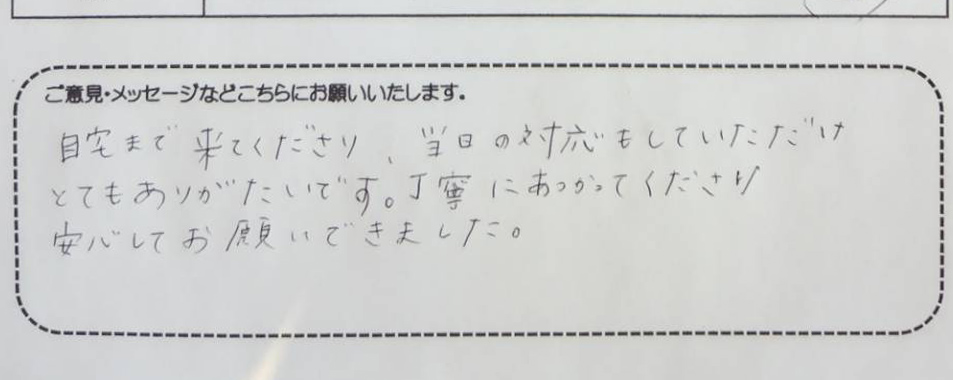 ご意見・メッセージなどこちらにお願いいたします。
自宅まで来てくださり、当日の対応もしていただけ
とてもありがたいです。丁寧にあつかってくださり
安心してお願いできました。